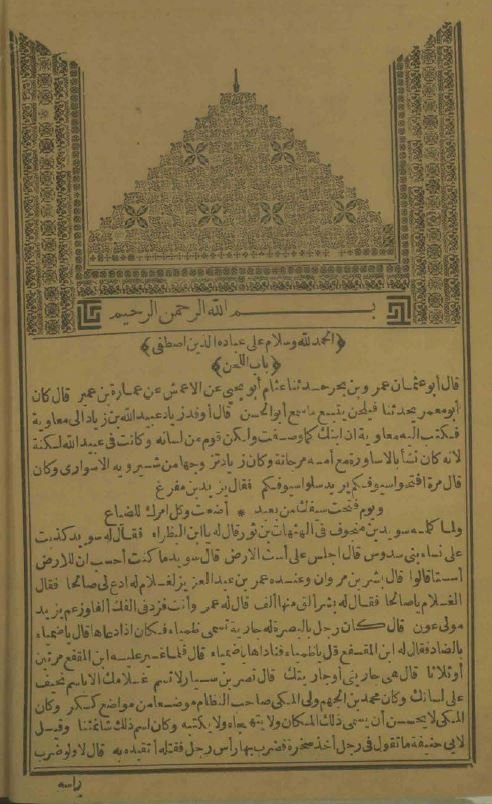 بسم الله الرحمن الرحيم
﴿الحمد لله وسلام على عباده الذين اصطفى﴾
﴿باب اللحن﴾
قال أبو عثمان عمرو بن بحر حدثنا عثام أبو يحيى عن الاعمش عن عمارة بن عمير قال كان
أبو معمر يحدثنا فيلحن يتبع ما سمع أبو الحسن قال أوفد زياد عبيد الله بن زياد الى معاوية
فكتب اليه معاوية ان ابنك كما وصفت ولكن قوم من لسانه وكانت في عبيد الله لكنة
لانه كان نشأ بالاساورة مع أمه مرجانة وكان زياد تزوجها من شيرويه الاسواري وكان
قال مرة افتحوا سيوفكم يريد سلوا سيوفكم فقال يزيد بن مفرغ
ويوم فتحت سيفك من بعيد * أضعت وكل امرك للضياع
ولما كلمه سويد بن منجوف في الهثهاث بن ثور قال له يا ابن البظراء فقال له سويد كذبت
على نساء بني سدوس قال اجلس على است الارض قال سويد ما كنت أحسب ان للارض
استا قالوا قال بشر بن مروان وعنده عمر بن عبد العزيز لغلام له ادع لي صالحا فقال
الغلام يا صالحا فقال له بشر ألق منها ألف قال له عمر وأنت فزد في ألفك ألفا وزعم يزيد
مولى عون قال كان رجل بالبصرة له جارية تسمى ظمياء فكان اذا دعاها قال يا ضمياء
بالضاد فقال له ابن المقفع قل يا ظمياء فناداها يا ضمياء قال فلما غير عليه ابن المقفع مرتين
أو ثلاثا قال هي جاريتي أو جاريتك قال نصر بن سيار لا تسم غلامك الا باسم يخف
على لسانك وكان محمد بن الجهم ولى المكي صاحب النظام موضعا من مواضع كسكر وكان
المكي لا يحسن أن يسمي ذلك المكان ولا يتهجاه ولا يكتبه وكان اسم ذلك شانمثنا وقيل
لابي حنيفة ما تقول في رجل أخذ صخرة فضرب بها رأس رجل فقتله أتقيده به قال لا ولو ضرب
رأسه